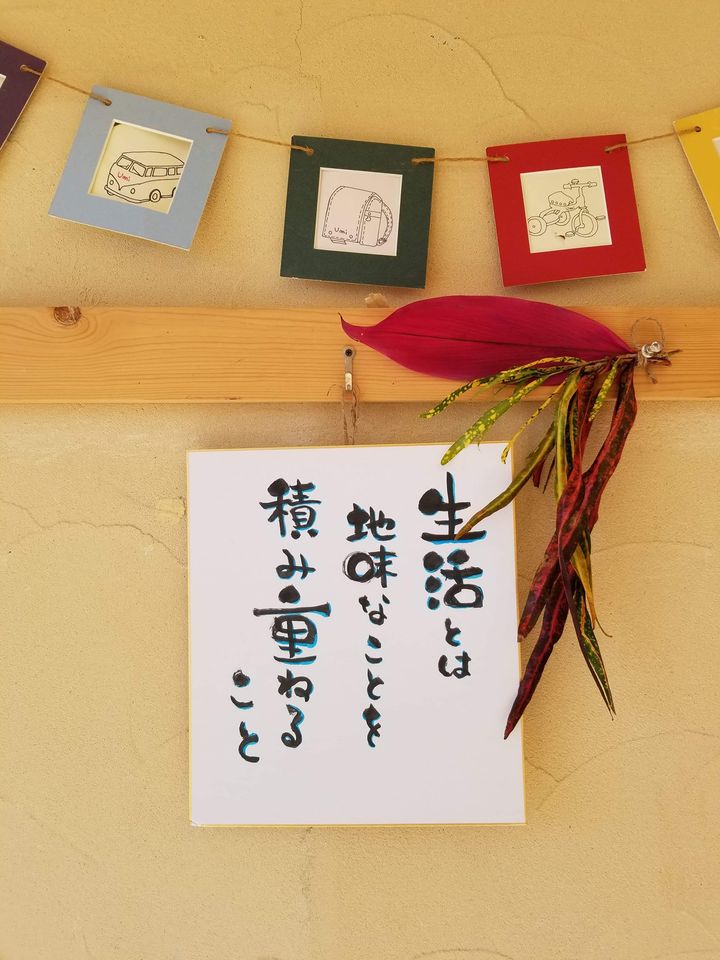 Umi
Umi
生活とは
地味なことを
積み重ねる
こと